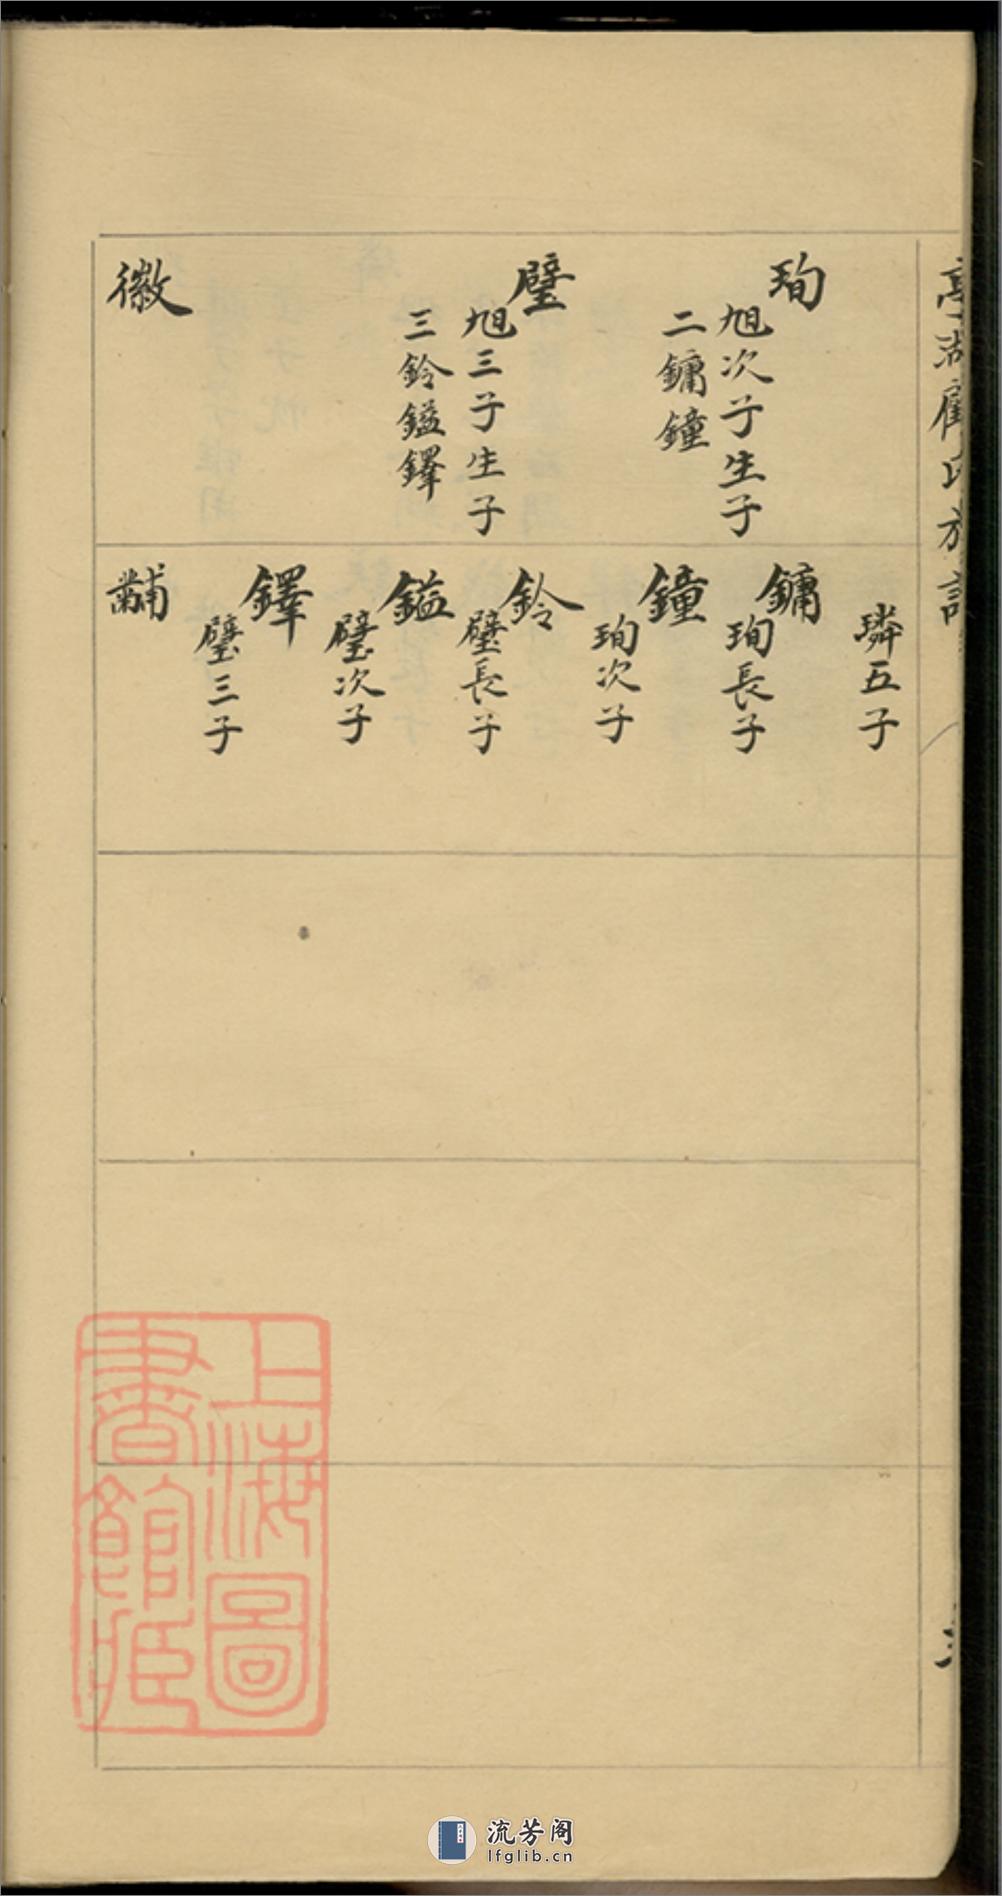 亭湖顧氏族譜
珣
旭次子生子
二鏞鐘
璧
旭三子生子
三鈴鎰鐸
徽
璘五子
鏞
珣長子
鐘
珣次子
鈴
璧長子
鎰
璧次子
鐸
璧三子
黼
上海圖
書館臧
流芳阁
lfglib.cn